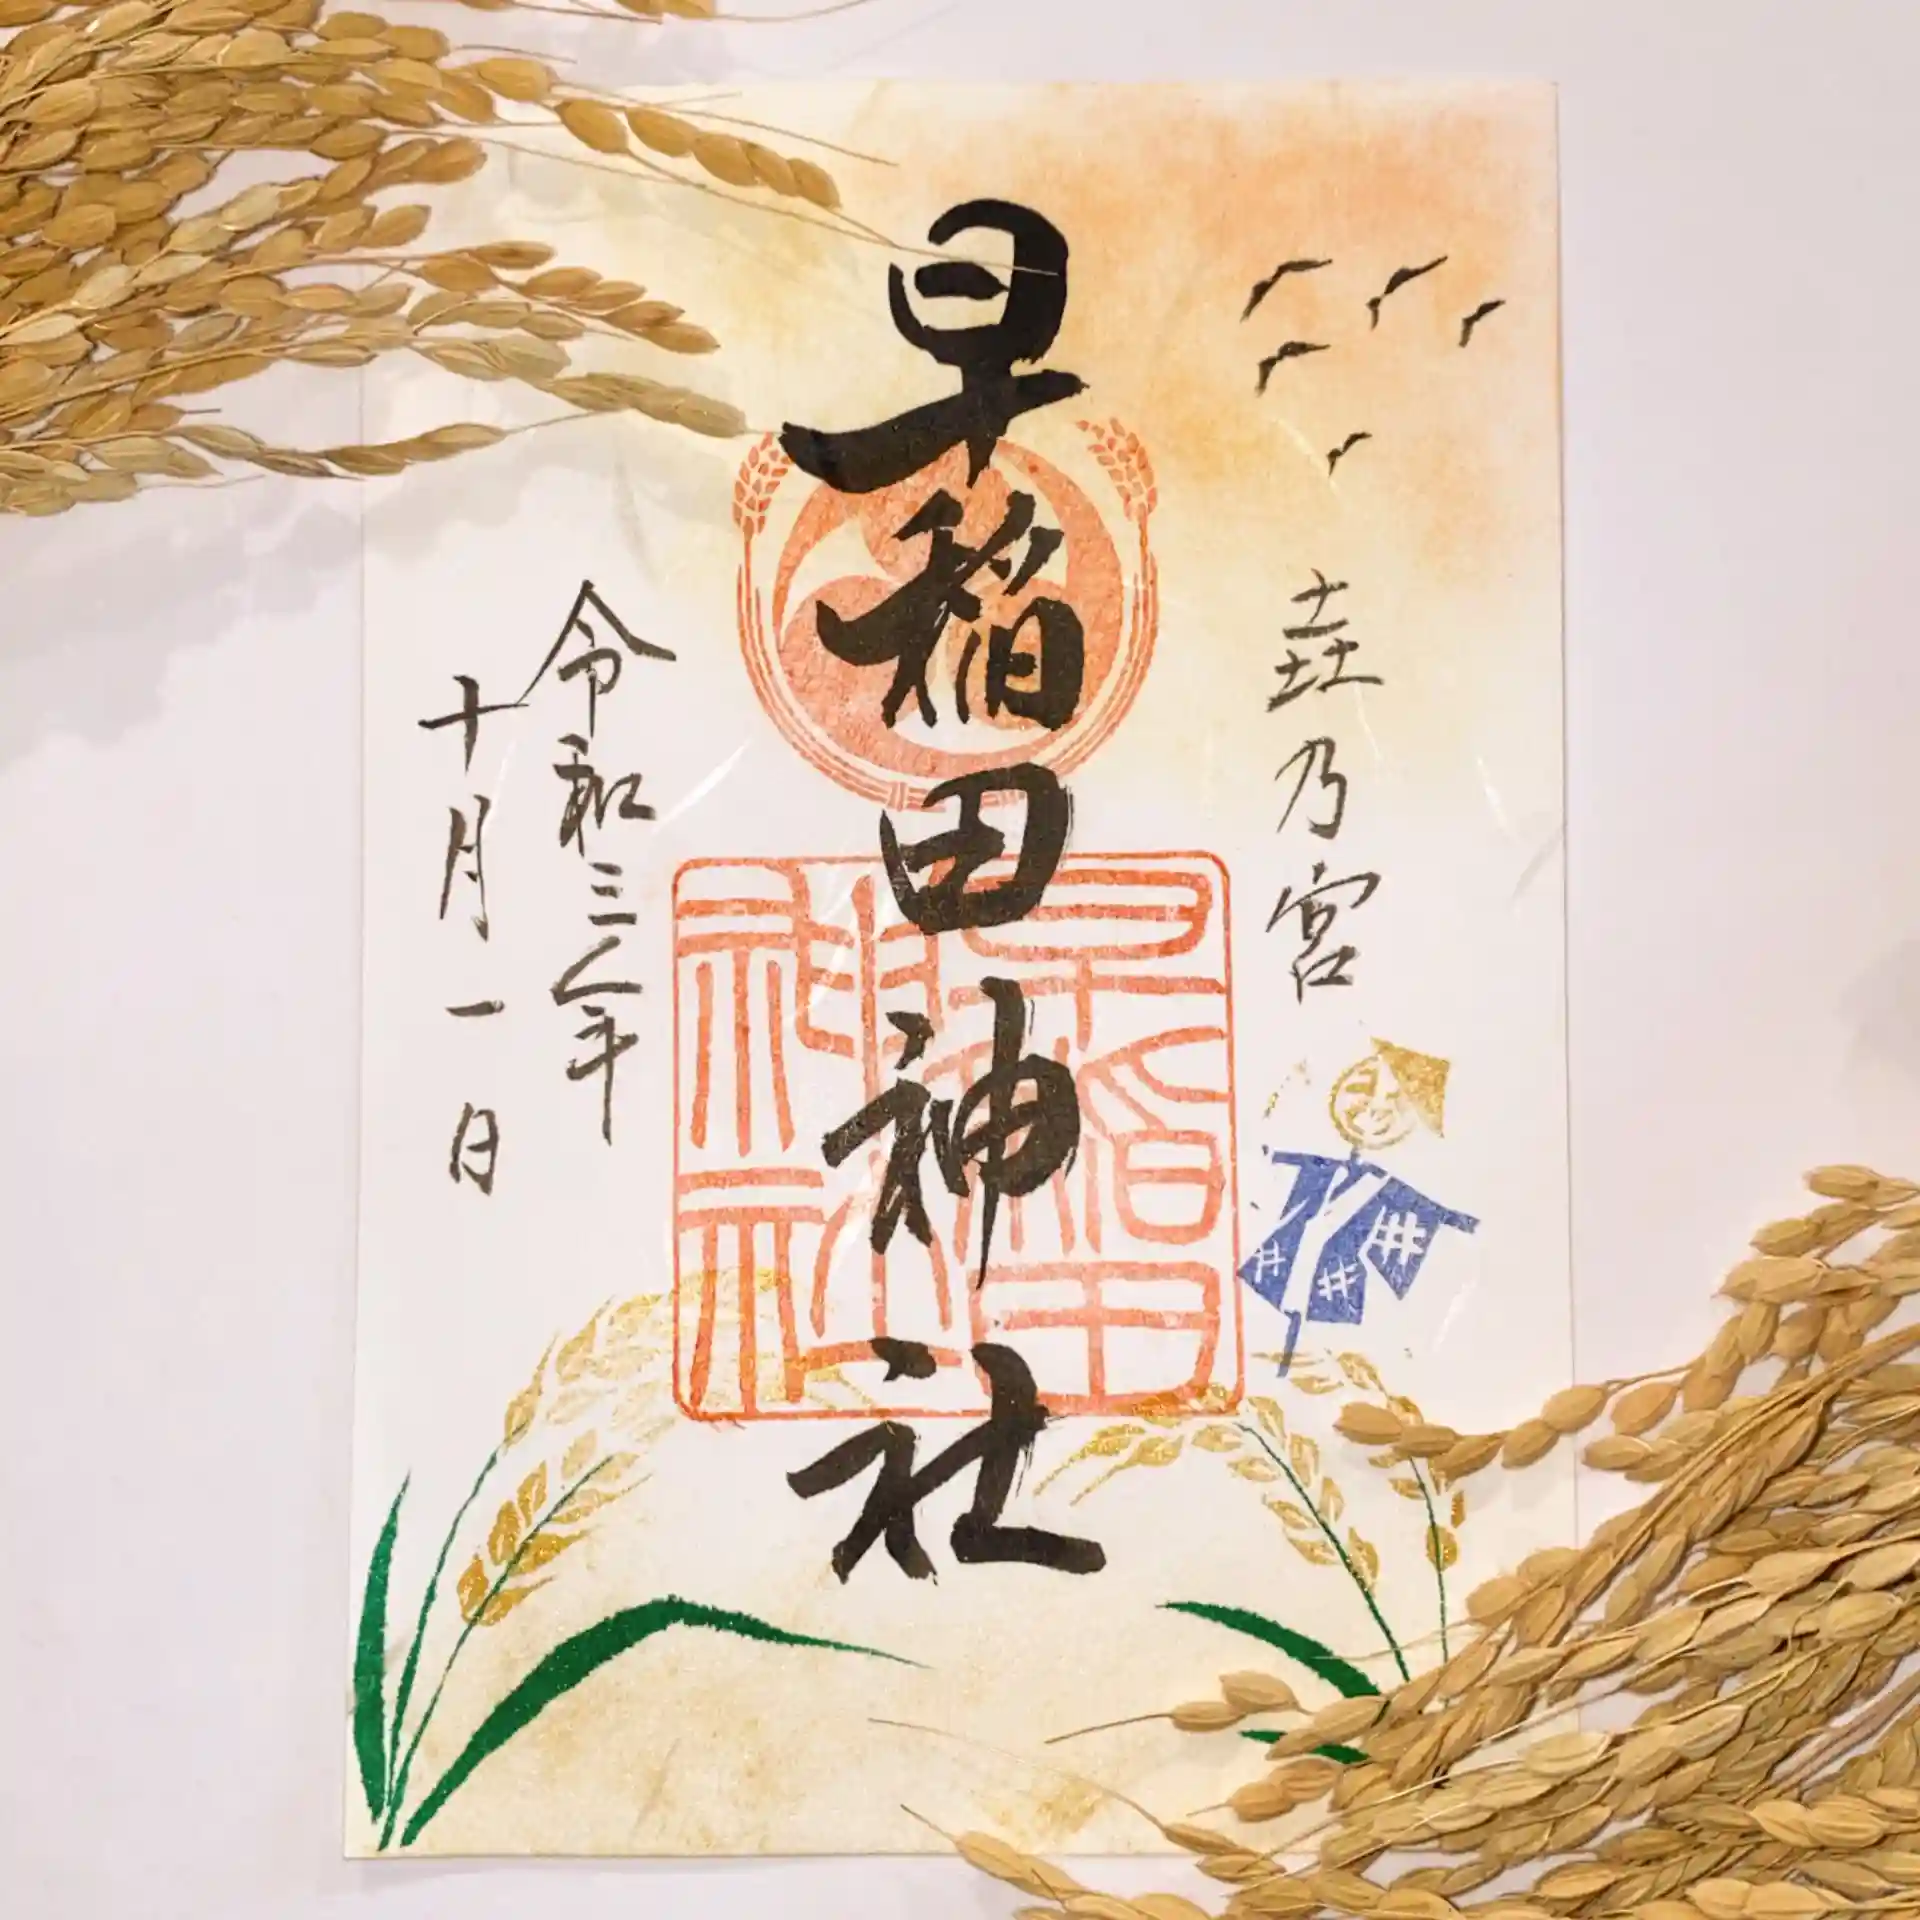 垚乃宮
早稲田神社
令和三年
十月一日
早稲田
神社